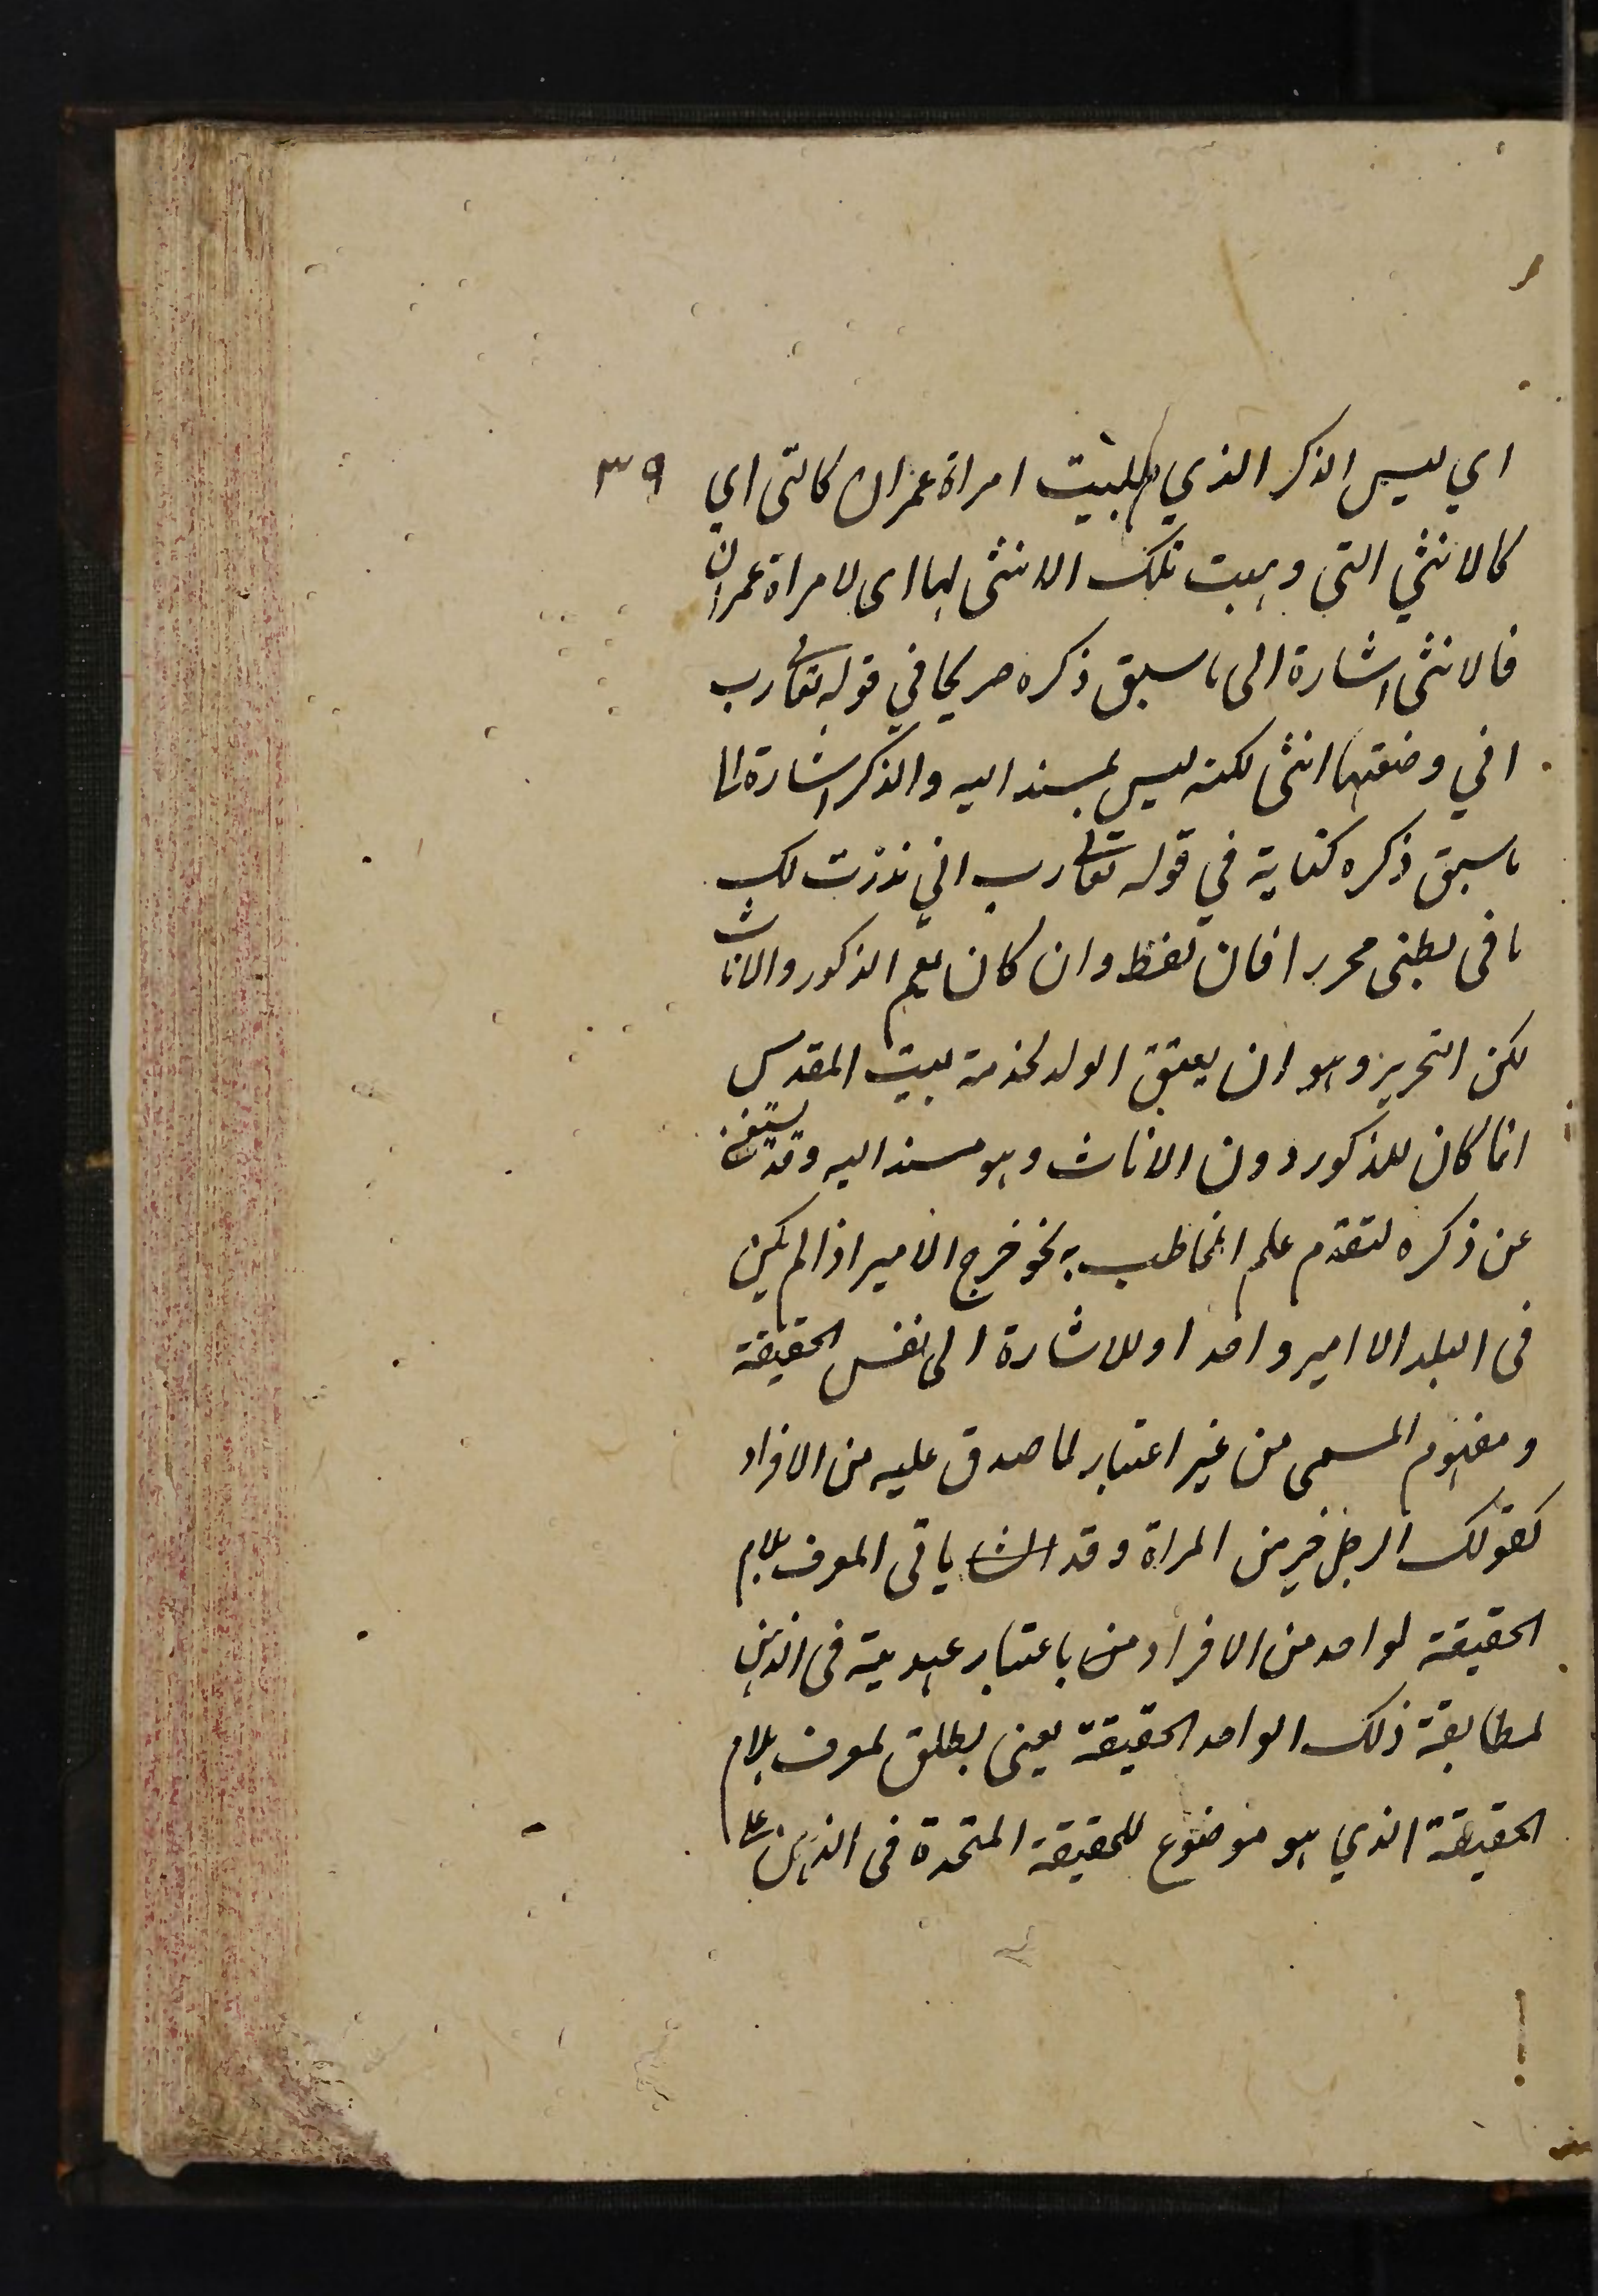 ٣٩
اي ليس الذكر الذي طلبت امراة عمران كالتى اي
كالانثي التى وهبت تلك الانثى لها اى لامراة عمران
فالانثى اشارة الى ما سبق ذكره صريحا في قوله تعالى رب
اني وضعتها انثى لكنه ليس بمسند اليه والذكر اشارة الى
ما سبق ذكره كناية في قوله تعالى رب اني نذرت لك
ما فى بطنى محررا فان لفظ وان كان يعم الذكور والاناث
لكن التحرير وهو ان يعتق الولد لخدمة بيت المقدس
انما كان للذكور دون الاناث وهو مسند اليه وقد يستغنى
عن ذكره لتقدم علم المخاطب به نحو خرج الامير اذا لم يكن
فى البلد الا امير واحد او للاشارة الى نفس الحقيقة
ومفهوم المسمى من غير اعتبار لما صدق عليه من الافراد
كقولك الرجل خير من المراة وقد ياتى المعرف بلام
الحقيقة لواحد من الافراد من باعتبار عهديته فى الذهن
لمطابقة ذلك الواحد الحقيقة يعنى يطلق لمعرف بلام
الحقيقة الذي هو موضوع للحقيقة المتحدة فى الذهن على